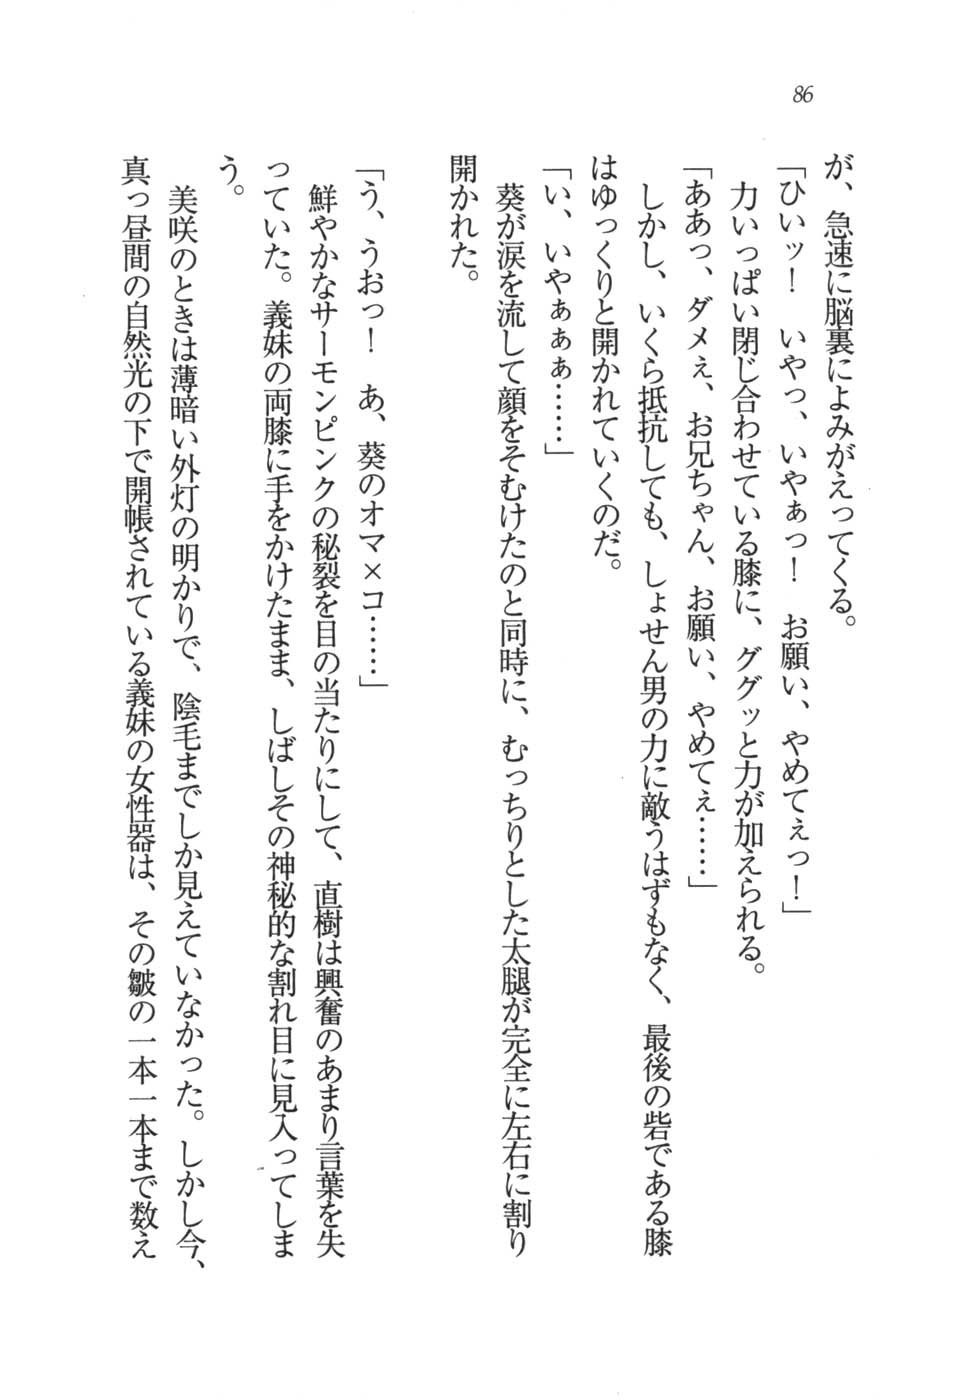 86
が、急速に脳裏によみがえってくる。
「ひいッ！　いやっ、いやぁっ！　お願い、やめてぇっ！」
力いっぱい閉じ合わせている膝に、ググッと力が加えられる。
「ああっ、ダメぇ、お兄ちゃん、お願い、やめてぇ……」
しかし、いくら抵抗しても、しょせん男の力に敵うはずもなく、最後の砦である膝
はゆっくりと開かれていくのだ。
「い、いやぁぁぁ……」
葵が涙を流して顔をそむけたのと同時に、むっちりとした太腿が完全に左右に割り
開かれた。
「う、うおっ！　あ、葵のオマ×コ……」
鮮やかなサーモンピンクの秘裂を目の当たりにして、直樹は興奮のあまり言葉を失
っていた。義妹の両膝に手をかけたまま、しばしその神秘的な割れ目に見入ってしま
う。
美咲のときは薄暗い外灯の明かりで、陰毛までしか見えていなかった。しかし今、
真っ昼間の自然光の下で開帳されている義妹の女性器は、その皺の一本一本まで数え